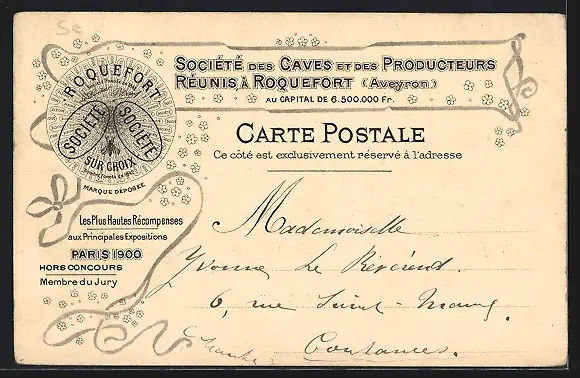 5e
SOCIÉTÉ DES CAVES ET DES PRODUCTEURS
RÉUNIS À ROQUEFORT (AVEYRON)
AU CAPITAL DE 6.500.000 Fr.
ROQUEFORT
SOCIÉTÉ
SOCIÉTÉ
SUR CHOIX
MARQUE DÉPOSÉE
CARTE POSTALE
Ce côté est exclusivement réservé à l'adresse
Les Plus Hautes Récompenses
aux Principales Expositions
PARIS 1900
HORS CONCOURS
Membre du Jury
Mademoiselle
Yvonne Le Révérend.
6, rue Saint-Maur,
Coutances.
(Manche)